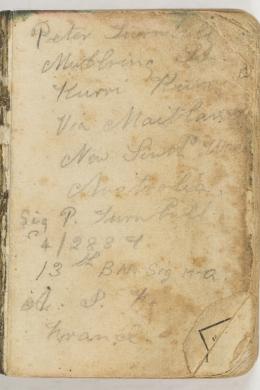 Peter Turnbull
Mulbring St
Kurri Kurri
Via Maitland
New South Wales
Australia.
Sig P. Turnbull
13th BN. Sig
A. I. F.
France